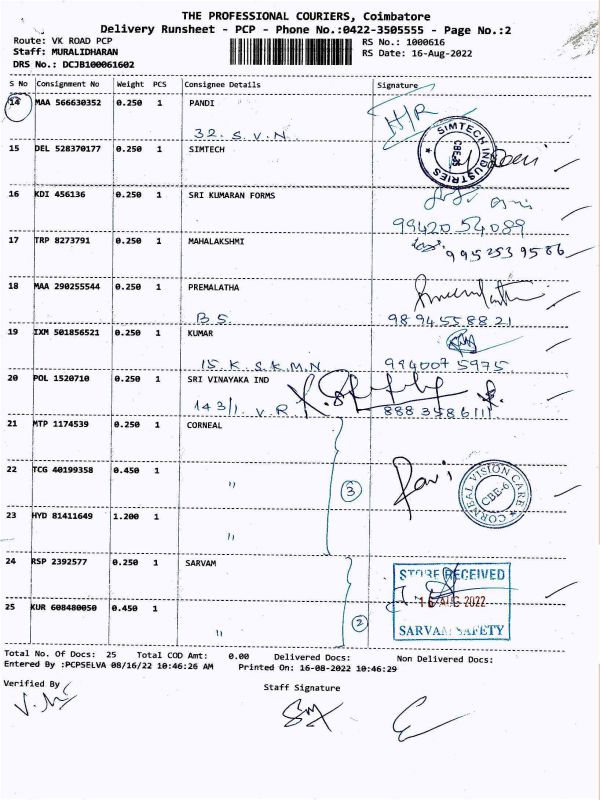 THE PROFESSIONAL COURIERS, Coimbatore
Delivery Runsheet - PCP - Phone No.:0422-3505555 - Page No.:2
Route: VK ROAD PCP RS No.: 1000616
Staff: MURALIDHARAN RS Date: 16-Aug-2022
DRS No.: DCJB100061602
S No Consignment No Weight PCS Consignee Details Signature
14 MAA 566630352 0.250 1 PANDI
32. S.V.N. H/R
15 DEL 528370177 0.250 1 SIMTECH
SIMTECH INDUSTRIES
16 KDI 456136 0.250 1 SRI KUMARAN FORMS
99420 54089
17 TRP 8273791 0.250 1 MAHALAKSHMI 9952539586
18 MAA 290255544 0.250 1 PREMALATHA
B S. 9894558821
19 IXM 501856521 0.250 1 KUMAR
15. K. S.K.M.N. 994007 5975
20 POL 1520710 0.250 1 SRI VINAYAKA IND
143/1. V.R 8883586111
21 MTP 1174539 0.250 1 CORNEAL
22 TCG 40199358 0.450 1 " 3 Ravi
CORNEAL VISION CARE CBE-6
23 HYD 81411649 1.200 1 "
24 RSP 2392577 0.250 1 SARVAM
STORE RECEIVED
16 AUG 2022
25 KUR 608480050 0.450 1 " 2
SARVAM SAFETY
Total No. Of Docs: 25 Total COD Amt: 0.00 Delivered Docs: Non Delivered Docs:
Entered By :PCPSELVA 08/16/22 10:46:26 AM Printed On: 16-08-2022 10:46:29
Verified By Staff Signature